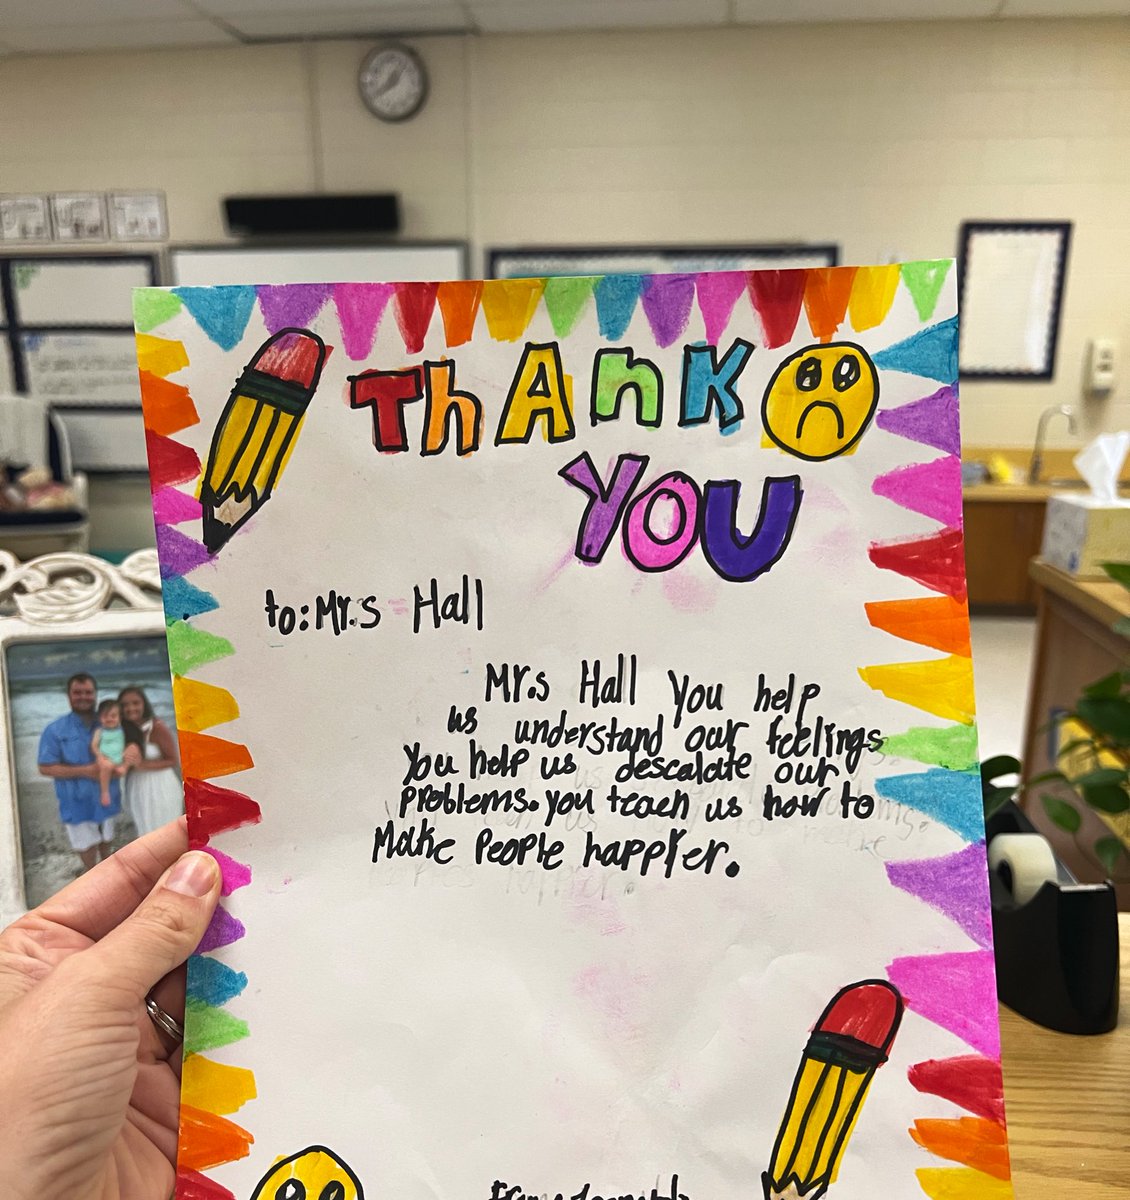 ThAnK
YOU
to: Mr.s Hall
Mr.s Hall you help
us understand our feelings
You help us descalate our
problems. you teach us how to
Make People happier.